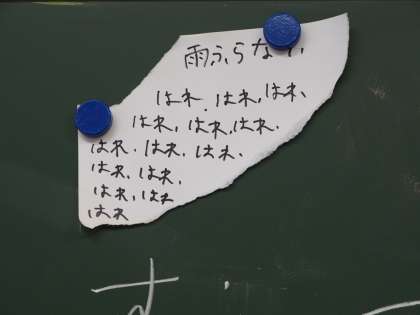 雨ふらない
はれ.はれ.はれ、
はれ.はれ.はれ.
はれ.はれ.はれ.
はれ.はれ.
はれ.はれ
はれ